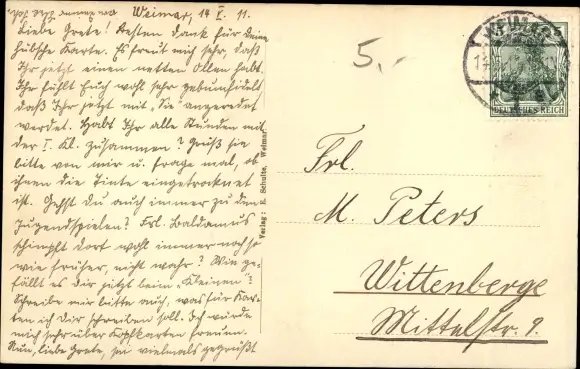 Weimar, 14. V. 11.
Liebe Grete! Besten Dank für Deine
hübsche Karte. Es freut mich sehr, daß
Ihr jetzt einen netten Ollen habt.
Ihr fühlt Euch wohl sehr gebumfidelt
daß Ihr jetzt mit „Sie“ angeredet
werdet. Habt Ihr alle Stunden mit
der I. Kl. zusammen? Grüß sie
bitte von mir u. frage mal, ob
ihnen die Tinte eingetrocknet
ist. Gehst Du auch immer zu den
Jugendspielen? Frl. Baldamus
schimpft dort wohl immer noch so
wie früher, nicht wahr? Wie ge-
fällt es Dir jetzt beim „Kleinen“?
Schreibe mir bitte auch, was für Kar-
ten ich Dir schreiben soll. Ich würde
mich sehr über Kopfkarten freuen.
Nun, liebe Grete, sei vielmals gegrüßt
Verlag: E. Schulte, Weimar
5,-
DEUTSCHES REICH
Frl.
M. Peters
Wittenberge
Mittelstr. 9.